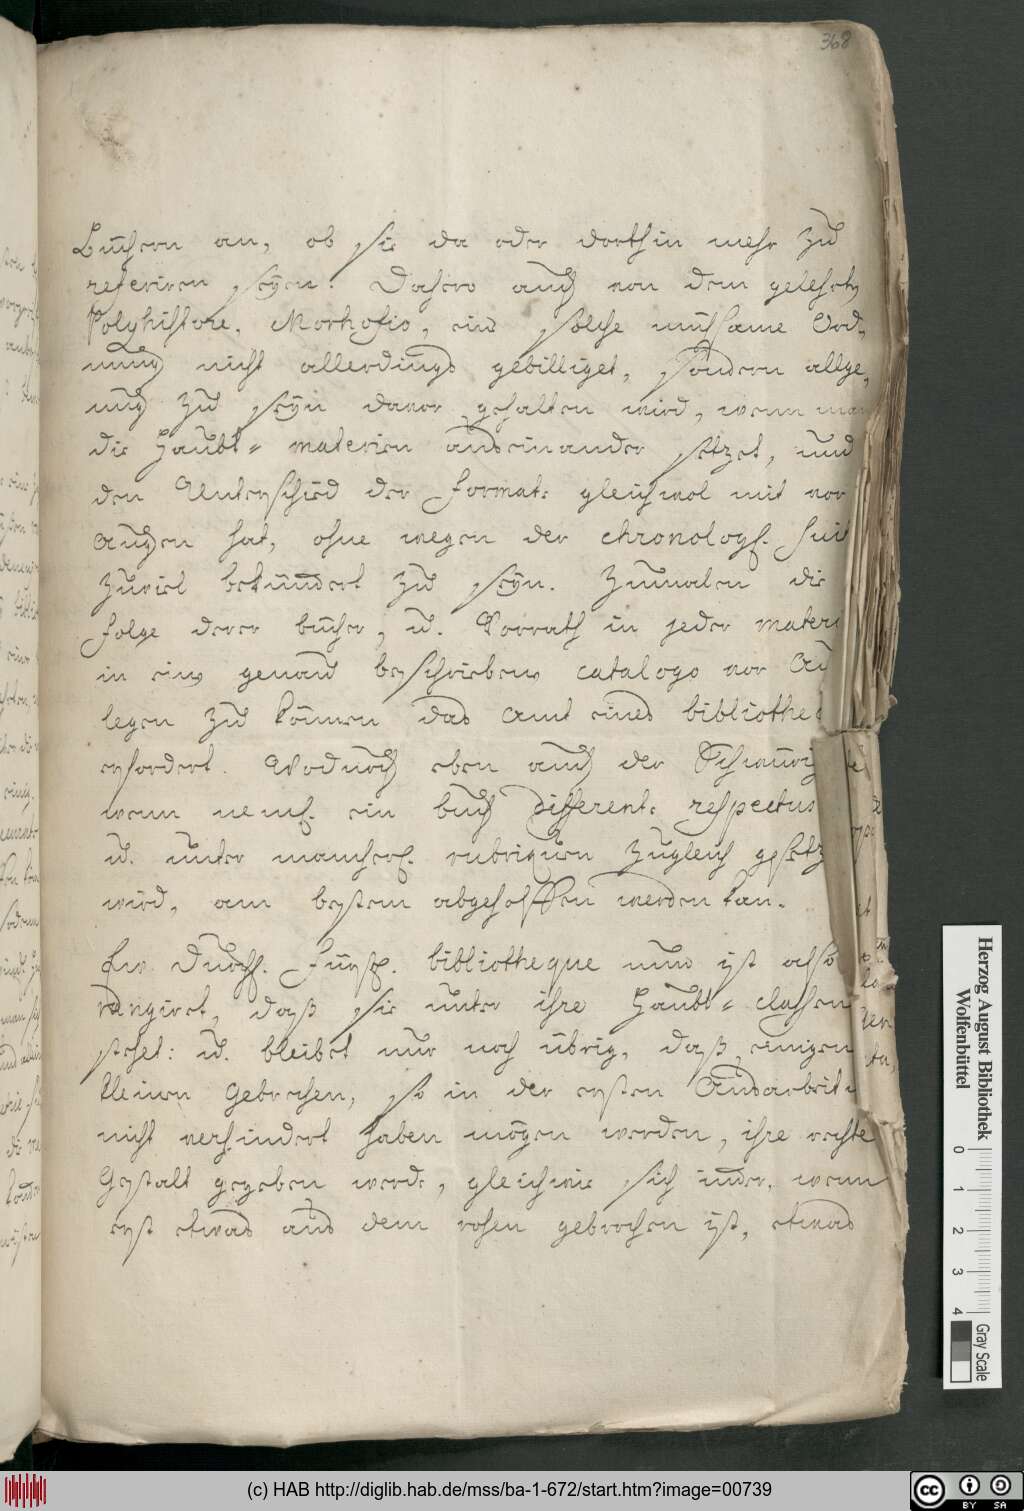 368
Büchern an, ob sie da oder dorthin mehr zu
referiren seyen. Dahero auch von dem gelehrten
Polyhistore, Morhofio, eine solche mühsame Ord-
nung nicht allerdings gebilliget, sondern allge-
nug zu seyn davor gehalten wird, wenn man
die Haubt-materien auseinander setzet, und
den Unterschied der format: gleichwol mit vor
Augen hat, ohne wegen der chronolog. suit
zuviel bekümmert zu seyn. Zumalen die
folge derer bücher, u. Vorrath in jeder materi
in einem genau beschriebenen catalogo vor Au
legen zu können das Amt eines bibliothec
erfordert. Wodurch eben auch der
wenn neml. ein buch different: respectus
u. unter mancherl. rubriquen zugleich gesetz
wird, am bestem abgeholffen werden kan.
Ew. Durchl. Fürstl. bibliotheque nun ist also
rangiret, daß sie unter ihre Haubt-classen
stehet: u. bleibet nur noch übrig, daß einigen
kleinen Gebrechen, so in der ersten Ausarbeit
nicht verhindert haben mögen werden, ihre rechte
Gestalt gegeben werde, gleichwie sich inder. wenn
erst etwas aus dem rohen gebrochen ist, etwas
Herzog August Bibliothek
Wolfenbüttel
0 1 2 3 4
Gray Scale
(c) HAB http://diglib.hab.de/mss/ba-1-672/start.htm?image=00739
cc BY SA